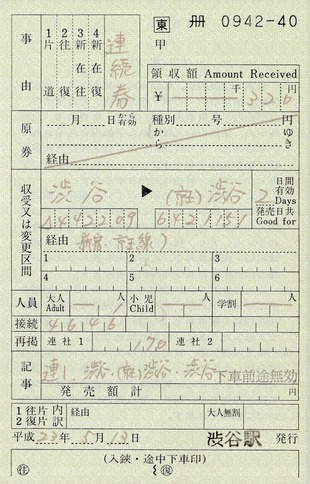 東 冊 0942-40
事由
1片道 2往復 3新在往 4新在復
連続券
甲
領収額 Amount Received
¥ 千 320 円
原券
月 日 から有効 種別 号 円
から ゆき
経由
収受又は変更区間
渋谷 ▶ (京王)渋谷
2 日間有効 Days
発売日共 Good for
1442209 6421151
経由
1 2 3
4 5 6
人員 大人 Adult 人 小児 Child 人 学割 人
接続 4646
再掲 連社1 170 連社2
記事 連1.渋谷-(京王)渋谷-渋谷 下車前途無効
発売額計 円
1往片 2復道 内訳 経由 大人無割
平成23年5月13日 渋谷駅 発行
(入鋏・途中下車印)
往 復